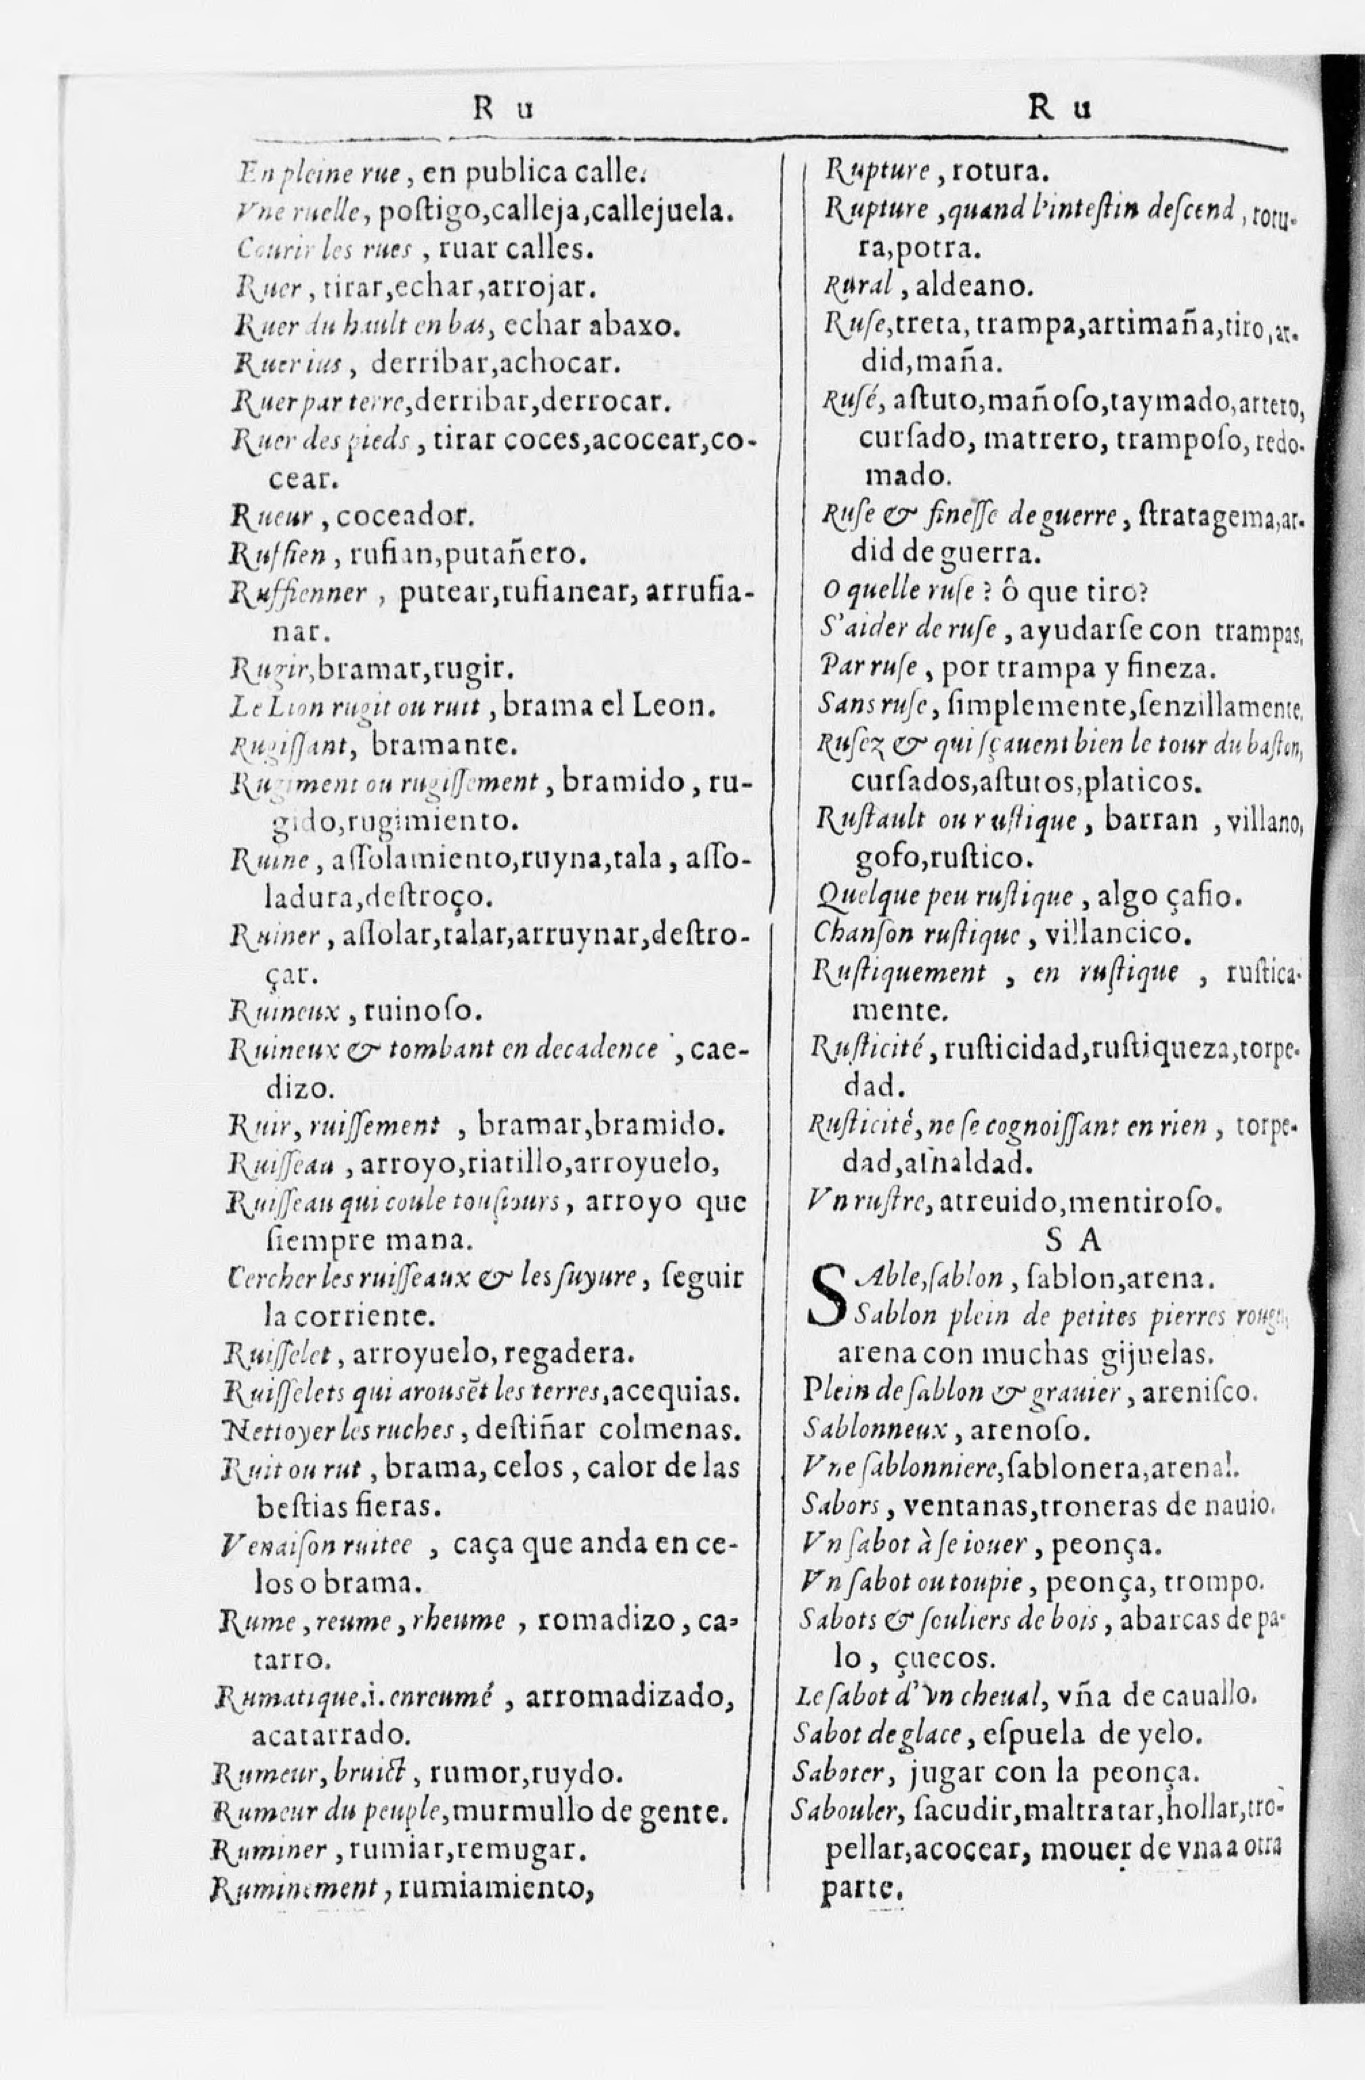 R u
En pleine rue, en publica calle.
Vne ruelle, poſtigo,calleja,callejuela.
Courir les rues, ruar calles.
Ruer, tirar,echar,arrojar.
Ruer du hault en bas, echar abaxo.
Ruer ius, derribar,achocar.
Ruer par terre,derribar,derrocar.
Ruer des pieds, tirar coces,acocear,co-
cear.
Rueur, coceador.
Ruffien, rufian,putañero.
Ruffienner, putear,rufianear, arrufia-
nar.
Rugir,bramar,rugir.
Le Lion rugit ou ruit, brama el Leon.
Rugiſſant, bramante.
Rugiment ou rugiſſement, bramido, ru-
gido,rugimiento.
Ruine, aſſolamiento,ruyna,tala, aſſo-
ladura,deſtroço.
Ruiner, aſſolar,talar,arruynar,deſtro-
çar.
Ruineux, ruinoſo.
Ruineux & tombant en decadence, cae-
dizo.
Ruir, ruiſſement, bramar,bramido.
Ruiſſeau, arroyo,riatillo,arroyuelo,
Ruiſſeau qui coule touſiours, arroyo que
ſiempre mana.
Cercher les ruiſſeaux & les ſuyure, ſeguir
la corriente.
Ruiſſelet, arroyuelo,regadera.
Ruiſſelets qui arouſẽt les terres,acequias.
Nettoyer les ruches, deſtiñar colmenas.
Ruit ou rut, brama, celos, calor de las
beſtias fieras.
Venaiſon ruitee, caça que anda en ce-
los o brama.
Rume, reume, rheume, romadizo, ca-
tarro.
Rumatique.i. enreumé, arromadizado,
acatarrado.
Rumeur, bruict, rumor,ruydo.
Rumeur du peuple,murmullo de gente.
Ruminer, rumiar,remugar.
Ruminement, rumiamiento,
R u
Rupture, rotura.
Rupture, quand l'inteſtin deſcend, rotu-
ra,potra.
Rural, aldeano.
Ruſe,treta, trampa,artimaña,tiro,ar-
did,maña.
Ruſé, aſtuto,mañoſo,taymado,artero,
curſado, matrero, trampoſo, redo-
mado.
Ruſe & fineſſe de guerre, ſtratagema,ar-
did de guerra.
O quelle ruſe? ô que tiro?
S'aider de ruſe, ayudarſe con trampas,
Par ruſe, por trampa y fineza.
Sans ruſe, ſimplemente,ſenzillamente,
Ruſez & qui ſçauent bien le tour du baſton,
curſados,aſtutos,platicos.
Ruſtault ou ruſtique, barran, villano,
gofo,ruſtico.
Quelque peu ruſtique, algo çafio.
Chanſon ruſtique, villancico.
Ruſtiquement, en ruſtique, ruſtica-
mente.
Ruſticité, ruſticidad,ruſtiqueza,torpe-
dad.
Ruſticité, ne ſe cognoiſſant en rien, torpe-
dad,aſnaldad.
Vn ruſtre, atreuido,mentiroſo.
S A
SAble,ſablon, ſablon,arena.
Sablon plein de petites pierres rouges,
arena con muchas gijuelas.
Plein de ſablon & grauier, areniſco.
Sablonneux, arenoſo.
Vne ſablonniere,ſablonera,arenal.
Sabors, ventanas,troneras de nauio.
Vn ſabot à ſe iouer, peonça.
Vn ſabot ou toupie, peonça, trompo.
Sabots & ſouliers de bois, abarcas de pa-
lo, çuecos.
Le ſabot d'vn cheual, vña de cauallo.
Sabot de glace, eſpuela de yelo.
Saboter, jugar con la peonça.
Sabouler, ſacudir,maltratar,hollar,tro-
pellar,acocear, mouer de vna a otra
parte.